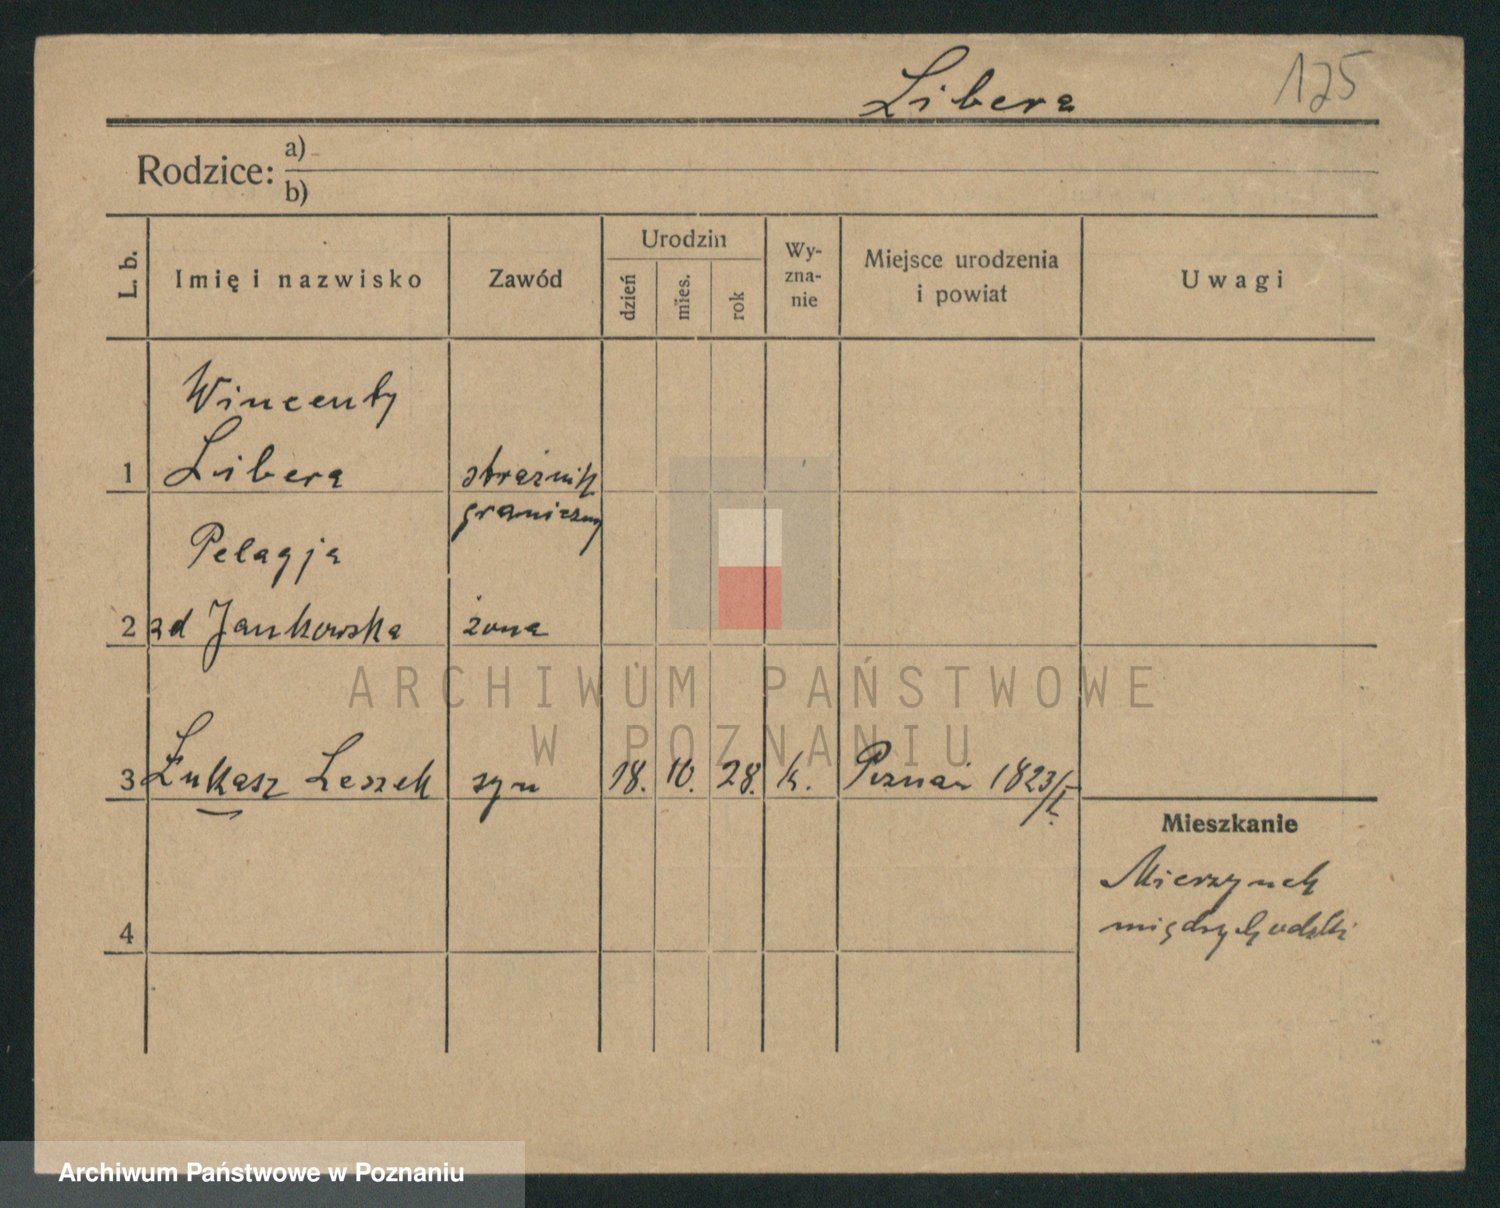 Libera
125
Rodzice: a)
b)
L. b.
Imię i nazwisko
Zawód
Urodzin
dzień
mies.
rok
Wy-
zna-
nie
Miejsce urodzenia
i powiat
Uwagi
Wincenty
1 Libera strażnik
graniczny
Pelagja
2 zd Jankowska żona
3 Łukasz Leszek syn 18. 10. 28. k. Poznań 1823/I
Mieszkanie
Mierzynek
4
ARCHIWUM PAŃSTWOWE
W POZNANIU
Archiwum Państwowe w Poznaniu